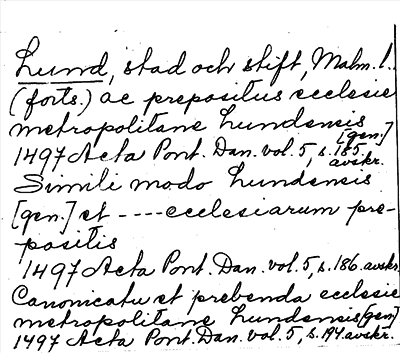 Lund, stad och stift, Malm. l.
(forts.) ac prepositus ecclesie
metropolitane Lundensis
[gen.]
1497 Acta Pont. Dan. vol. 5, s. 185.
avskr.
Simili modo Lundensis
[gen.] et ----ecclesiarum pre-
positis
1497 Acta Pont. Dan. vol. 5, s. 186. avskr.
Canonicatu et prebenda ecclesie
metropolitane Lundensis [gen]
1497 Acta Pont. Dan. vol. 5, s. 194. avskr.